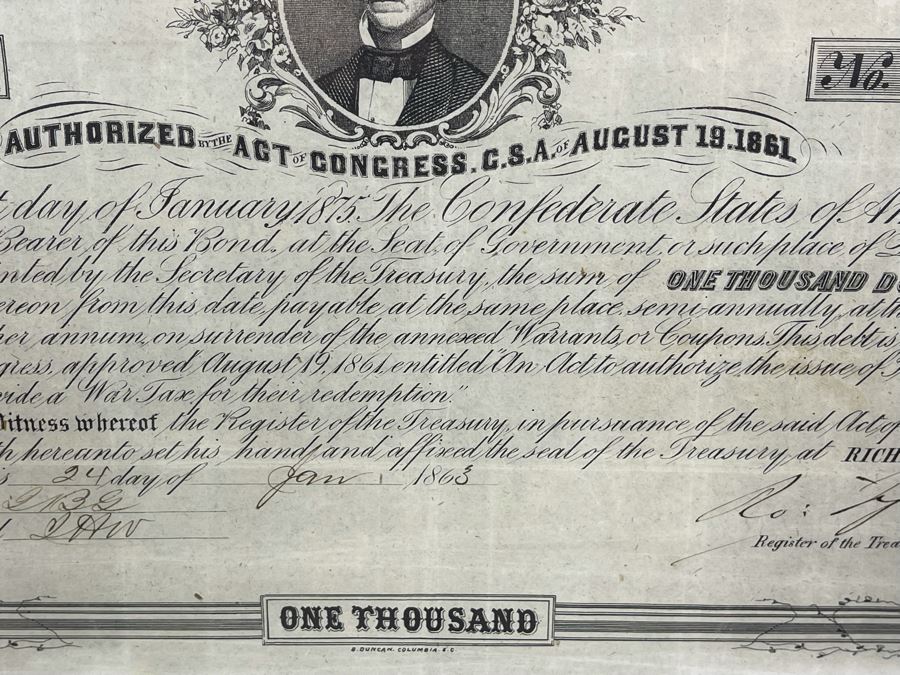 No.
AUTHORIZED BY THE ACT OF CONGRESS. C.S.A. OF AUGUST 19.1861.
day of January 1875. The Confederate States of
Bearer, of this Bond, at the Seat of Government, or such place of
by the Secretary of the Treasury, the sum of ONE THOUSAND
from this date, payable at the same place, semi-annually, at
annum, on surrender of the annexed Warrants, or Coupons. This debt is
approved August 19, 1861, entitled "An Act to authorize the issue of
a War Tax for their redemption."
Witness whereof the Register of the Treasury, in pursuance of the said Act of
hereunto set his hand, and affixed, the seal of the Treasury, at RICH
24 day of Jan 1863
Ro:
Register of the Trea
ONE THOUSAND
B. DUNCAN. COLUMBIA. S.C.